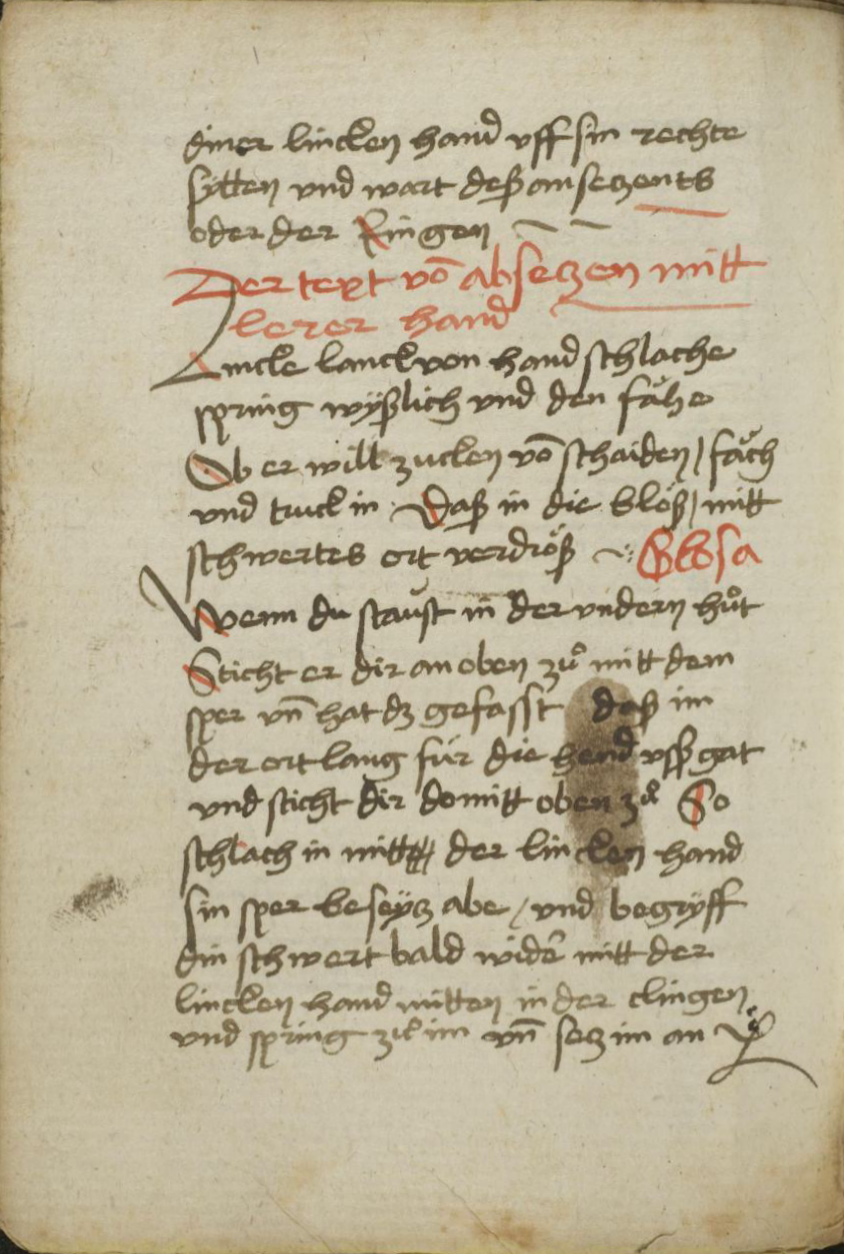 diner lincken hand vff sin rechte
sÿtten vnd wart deß anseczents
oder der Ringen
Der text võ abseczen mitt
lerer hand
Lincke lanck von hand schlache
spring wÿßlich vnd den fǎhe
Ob er will zucken võ schaiden / fǎch
vnd truck in · Daß in die blöß / mitt
schwertes ort verdröß ~ Glosa
Wenn du staǔst in der vndern hůt
Sticht er dir an oben zů mitt dem
sper vñ hat dz gefasst daß im
der ort lang für die hend vsß gat
vnd sticht dir do mitt oben zů So
schlach in mitt der lincken hand
sin sper beseÿcz abe / vnd begrÿff
din schwert bald wider mitt der
lincken hand mitten in der clingen
vnd spring zů im vñ secz im an